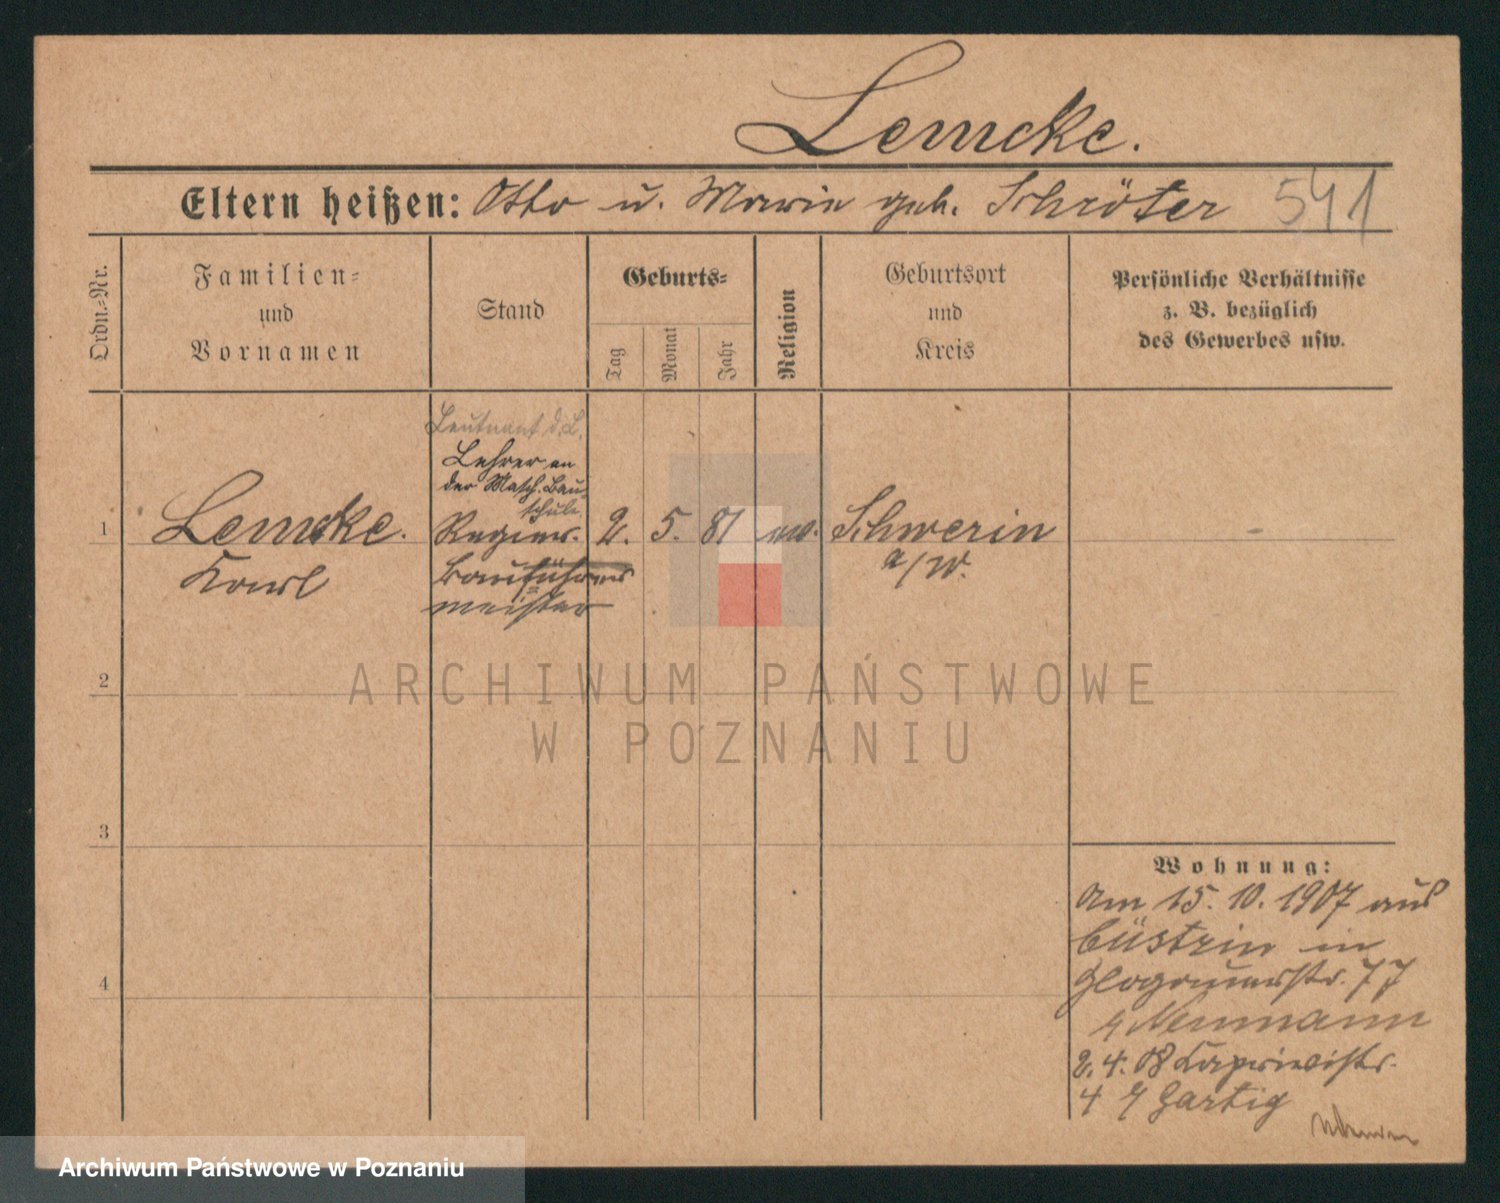 Lemcke.
Eltern heißen: Otto u. Marie geb. Schröter 541
Ordn.=Nr.
Familien=
und
Vornamen
Stand
Geburts=
Tag
Monat
Jahr
Religion
Geburtsort
und
Kreis
Persönliche Verhältnisse
z. B. bezüglich
des Gewerbes usw.
Leutnant d. L.
Lehrer an
der Masch. Bau-
schule.
1 Lemcke. Regier. 2. 5. 81 ev. Schwerin
Karl Bauführer a/W.
meister
2
3
4
Wohnung:
Am 15. 10. 1907 aus
Cüstrin in
Glogauerstr. 77
b/ Neumann
2. 4. 08 Caprivistr.
4 b/ Hartig
ARCHIWUM PAŃSTWOWE
W POZNANIU
Archiwum Państwowe w Poznaniu